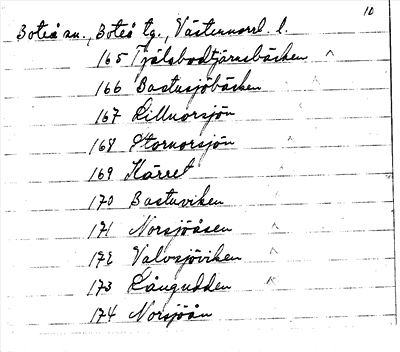 10
Boteå sn., Boteå tg., Västernorrl. l.
165 Tjälsbodtjärnsbäcken ^
166 Bastusjöbäcken ^
167 Lillnorsjön
168 Stornorsjön ^
169 Kärret ^
170 Bastuviken ^
171 Norsjöåsen ^
172 Valvsjöviken ^
173 Långudden ^
174 Norsjöån